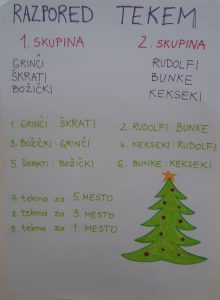 RAZPORED TEKEM
1. SKUPINA 2. SKUPINA
GRINČI RUDOLFI
ŠKRATI BUNKE
BOŽIČKI KEKSEKI
1. GRINČI : ŠKRATI 2. RUDOLFI : BUNKE
3. BOŽIČKI : GRINČI 4. KEKSEKI : RUDOLFI
5. ŠKRATI : BOŽIČKI 6. BUNKE : KEKSEKI
7. tekma za 5. MESTO
8. tekma za 3. MESTO
9. tekma za 1. MESTO